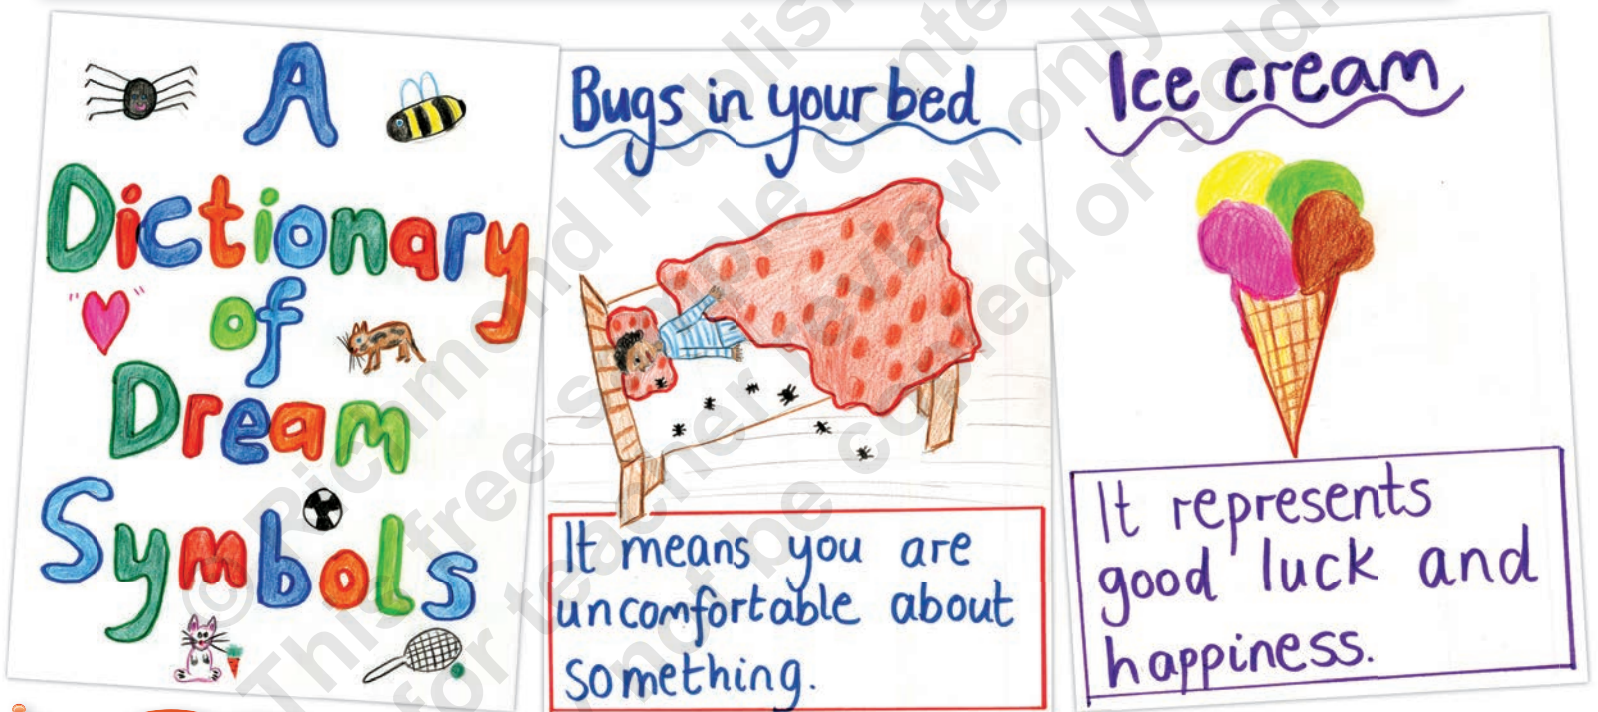 A
Dictionary
of
Dream
Symbols
Bugs in your bed
It means you are
uncomfortable about
something.
Ice cream
It represents
good luck and
happiness.
© Richmond Publish
This free sample conte
for teacher review only
not be copied or sold.